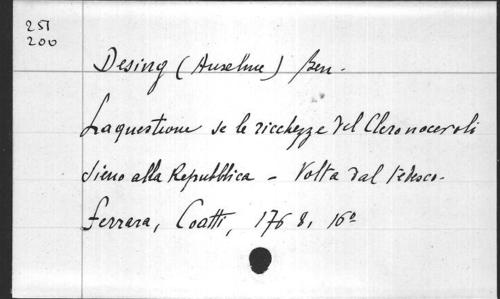 251
200
Desing (Anselme) Ben.
La questione se le ricchezze del Clero nocevoli
sieno alla Repubblica - Volta dal tedesco.
Ferrara, Coatti, 1768, 16º